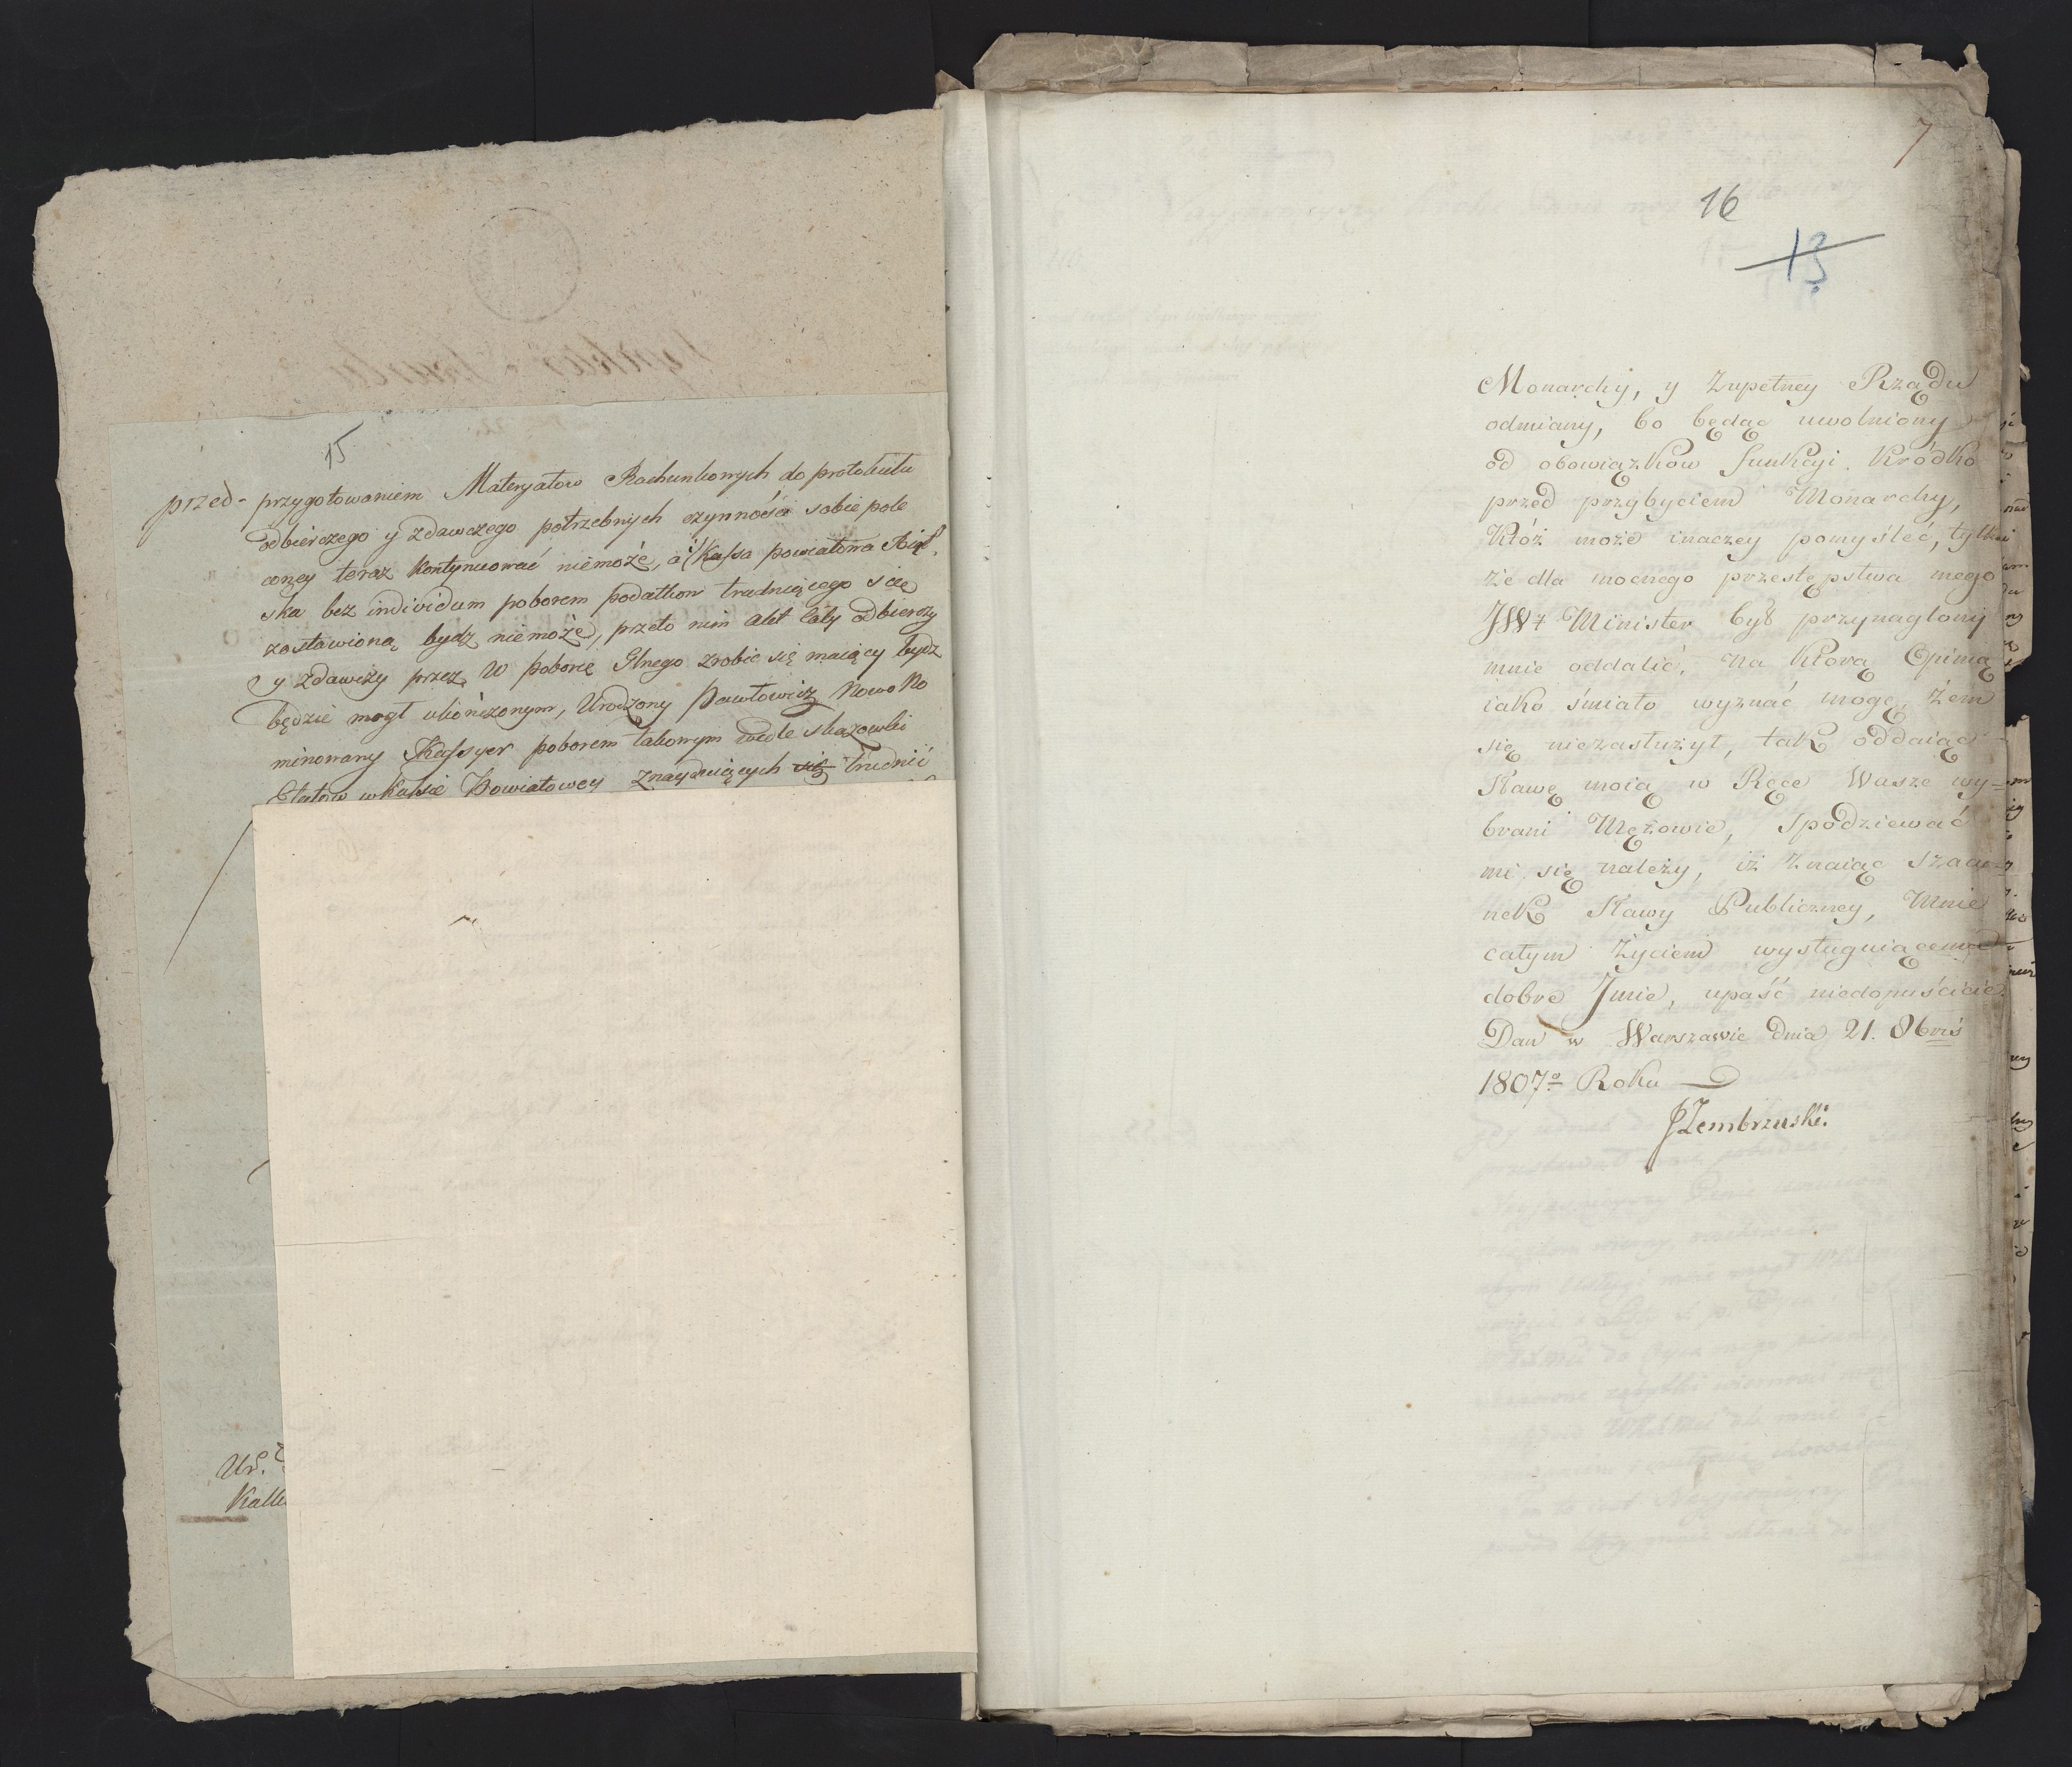 15
przed- przygotowaniem Materyałow Rachunkowych do protokułu
odbierczego y zdawczego potrzebnych czynności sobie pole
coney teraz kontynuować niemoże, a Kassa powiatowa
ska bez individum poborem podatkow trudniącego się
zostawioną bydz niemoże, przeto nim akt cały odbierczy
y zdawczy przez W poborcę Glnego zrobic się maiący bydz
będzie mogł ukończonym, Urodzony Pawłowicz Nowo No
minowany Kassyer poborem takowym wedle skazowki
Etatow w kassie Powiatowey znayduiących się trudnić
Ur.
7
16
13
Monarchy, y Zupełney Rządu
odmiany, bo będąc uwolniony
od obowiązków funkcyi. Kródko
przed przybyciem Monarchy,
Któż może inaczey pomyśleć, tylko
że dla mocnego przestępstwa mego
JW Minister był przynaglony
mnie oddalić, Na którą Opinią
iako śmiało wyznać mogę, żem
się niezasłużył, tak oddaiąc
Sławę moią w Ręce Wasze wy=
brani Mężowie, Spodziewać
mi się należy, iż Znaiąc szacu=
nek Sławy Publiczney, Mnie
całym Życiem wysługuiącemu
dobre Jmie, upaść niedopuścicie.
Dań w Warszawie dnia 21. 8bris
1807o Roku
JZembrzuski.